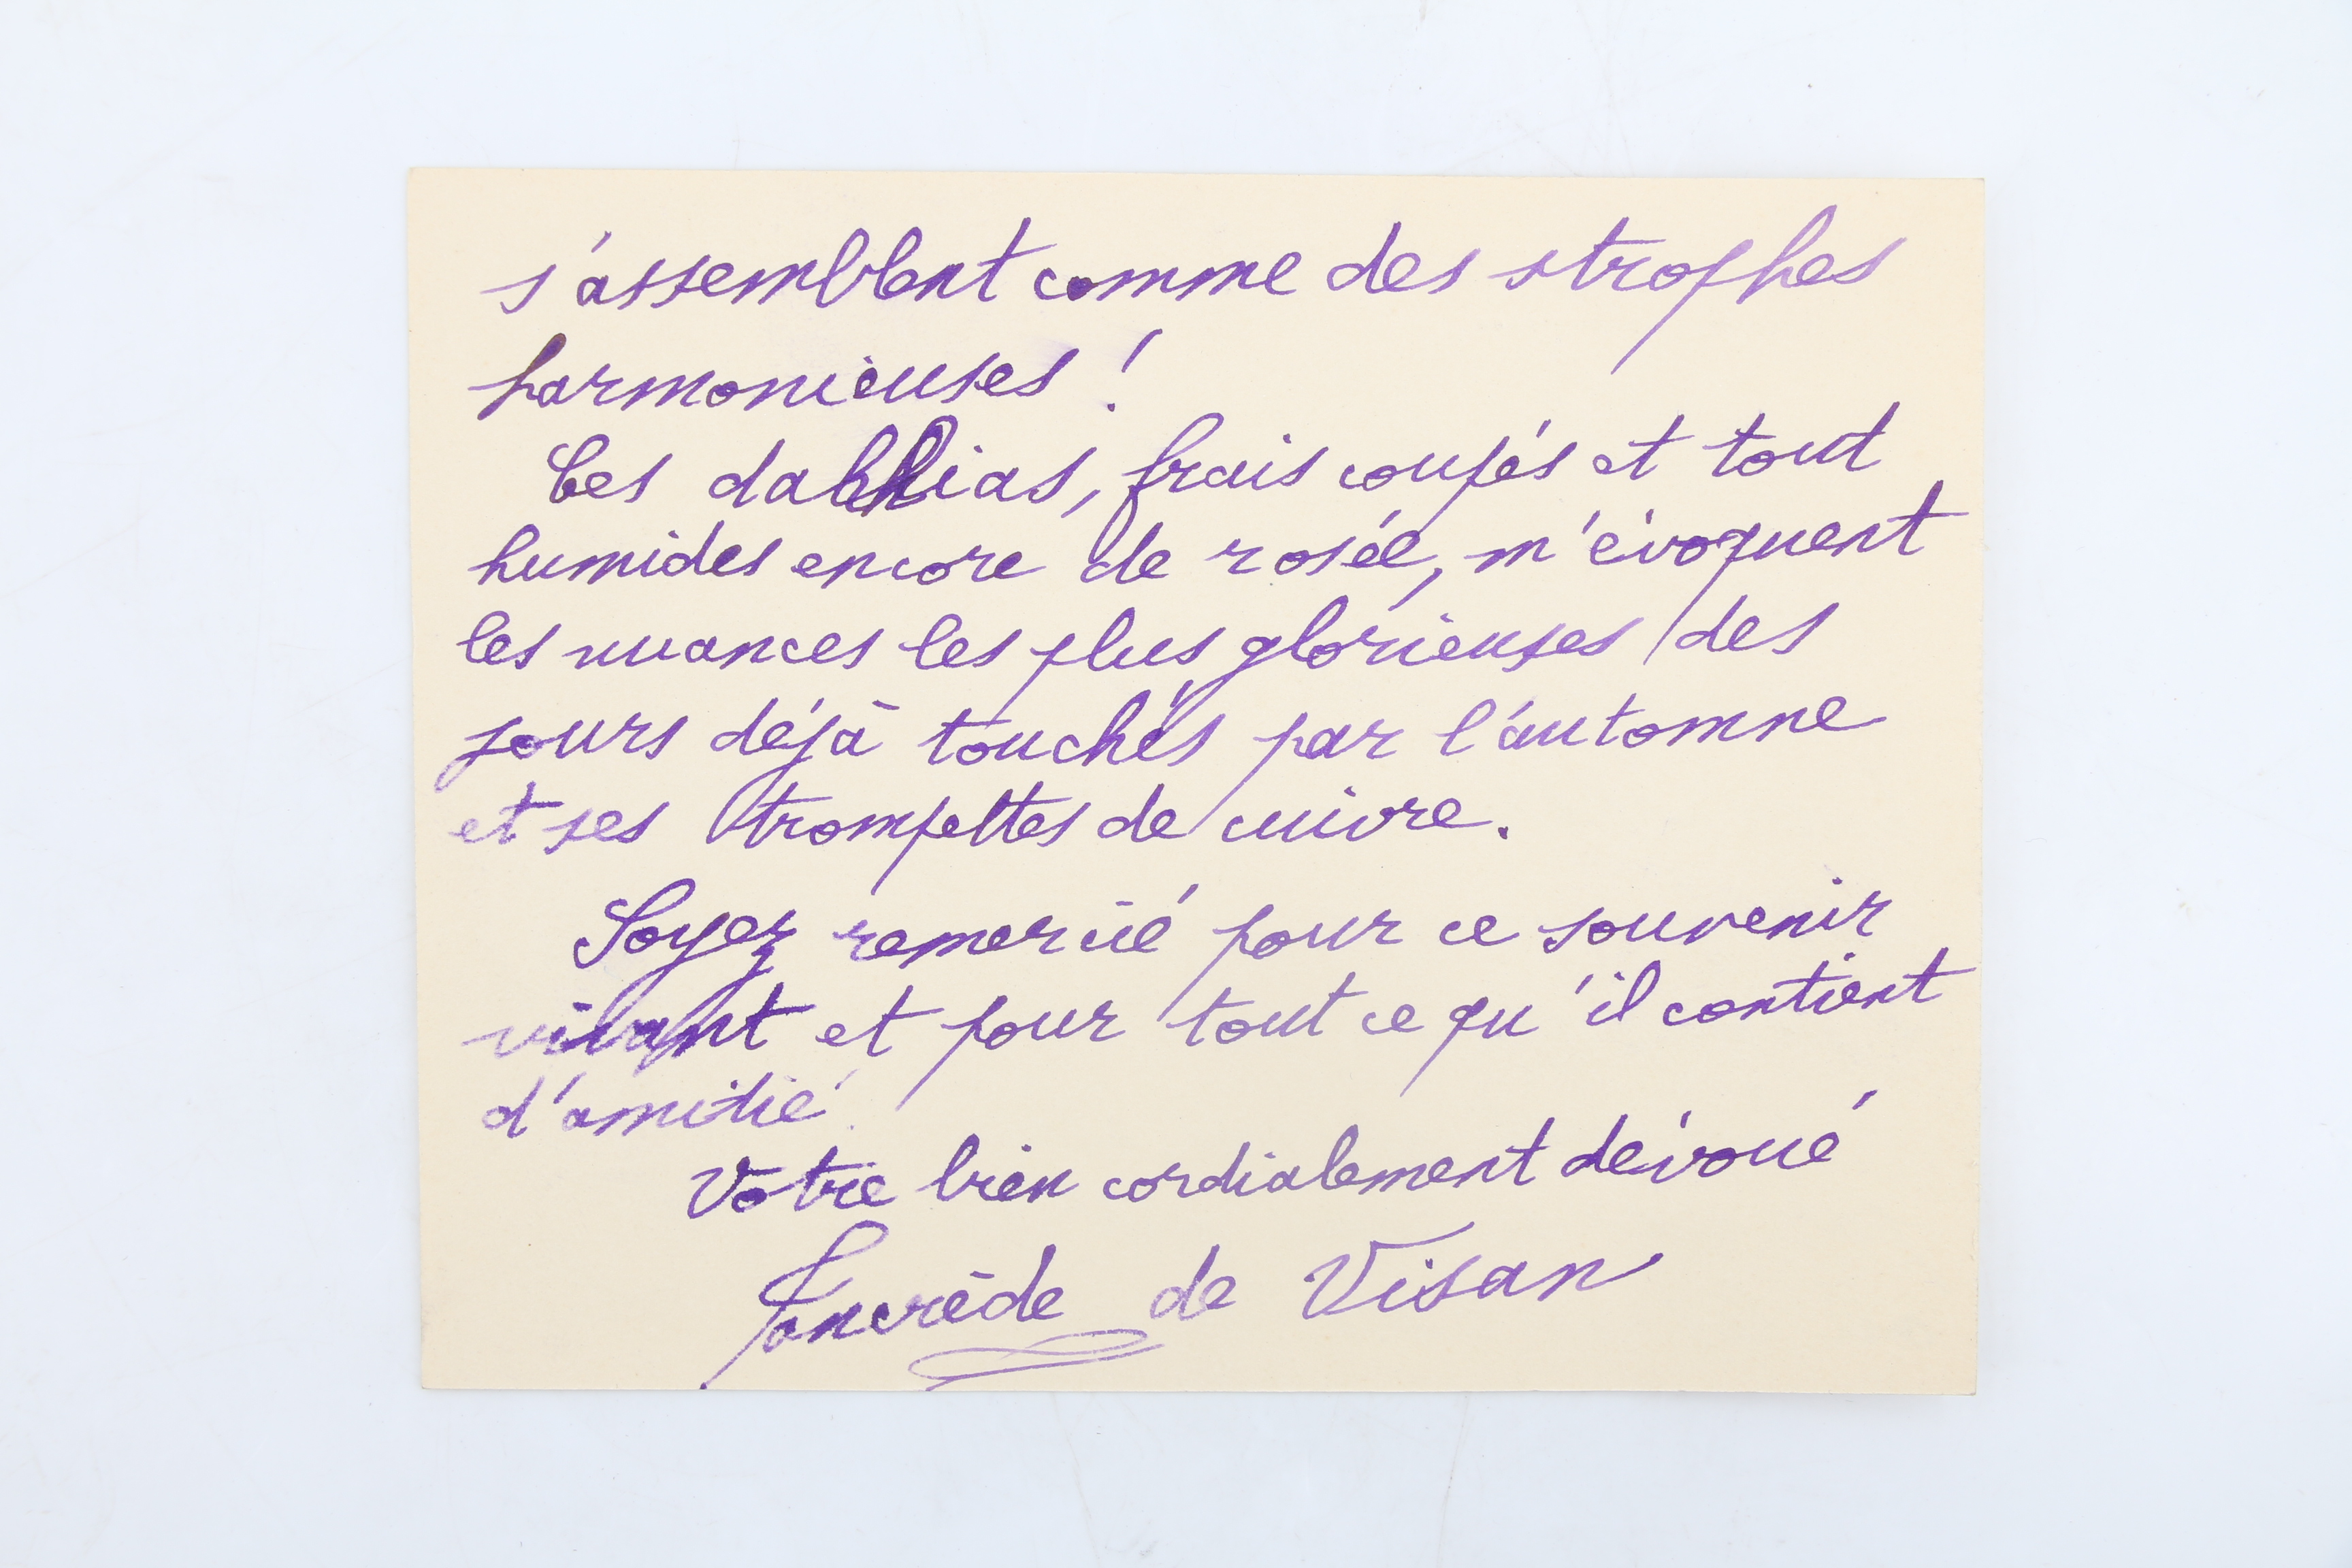 s'assemblent comme des strophes
harmonieuses !
Ces dahlias, frais coupés et tout
humides encore de rosée, m'évoquent
les nuances les plus glorieuses des
jours déjà touchés par l'automne
et ses trompettes de cuivre.
Soyez remercié pour ce souvenir
vivant et pour tout ce qu'il contient
d'amitié.
Votre bien cordialement dévoué
Tancrède de Visan